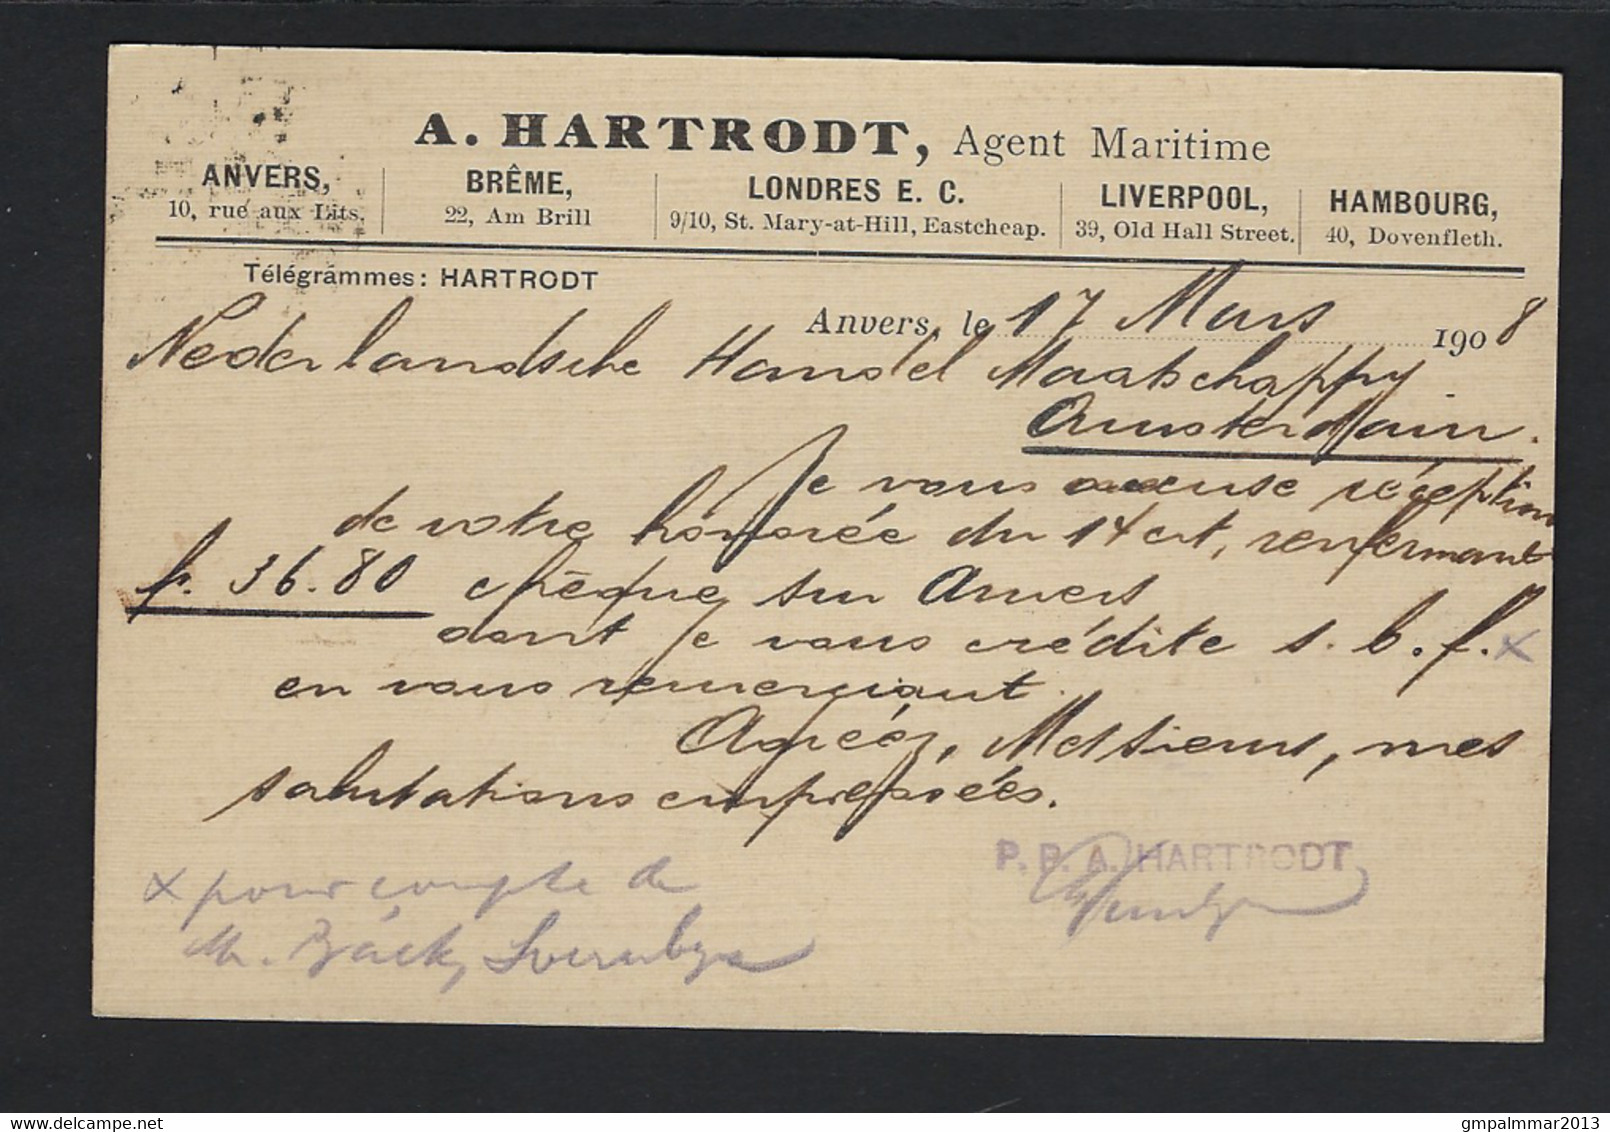 A. HARTRODT, Agent Maritime
ANVERS, BRÊME, LONDRES E. C. LIVERPOOL, HAMBOURG,
10, rue aux Lits. 22, Am Brill 9/10, St. Mary-at-Hill, Eastcheap. 39, Old Hall Street. 40, Dovenfleth.
Télégrammes: HARTRODT
Anvers, le 17 Mars 1908
Nederlandsche Handel Maatschappy
Amsterdam.
Je vous accuse réception
de votre honorée du 14 ct, renfermant
fr. 36.80 chèque sur Anvers
dont je vous crédite s. b. f. x
en vous remerciant.
Agréez, Messieurs, mes
salutations empressées.
P. P. A. HARTRODT
x pour compte de
M.
delcampe.net
gmpalmmar2013